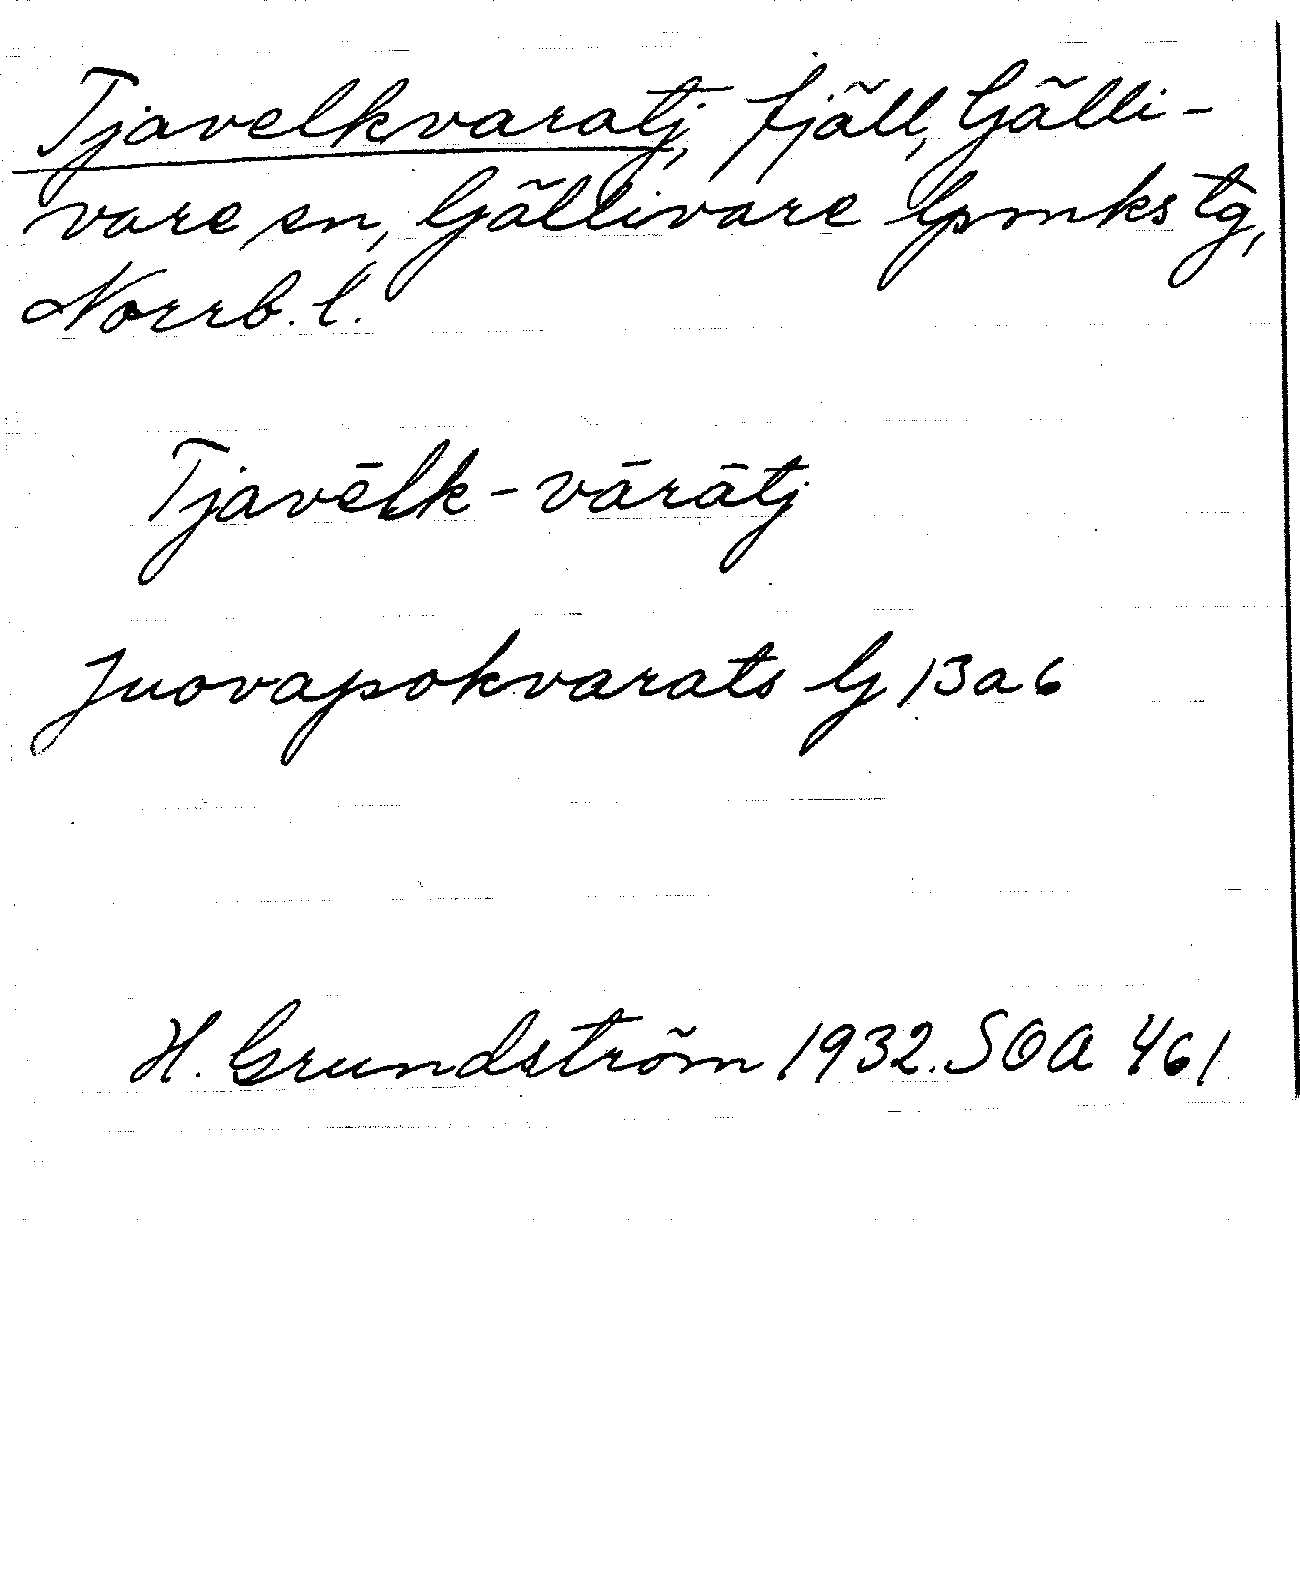 Tjavelkvaratj, fjäll, Gjälli-
vare sn, Gjällivare lpmks tg,
Norrb. l.
Tjavēlk-vārātj
Juovapokvarats G 13 a 6
H. Grundström 1932. SOA 461